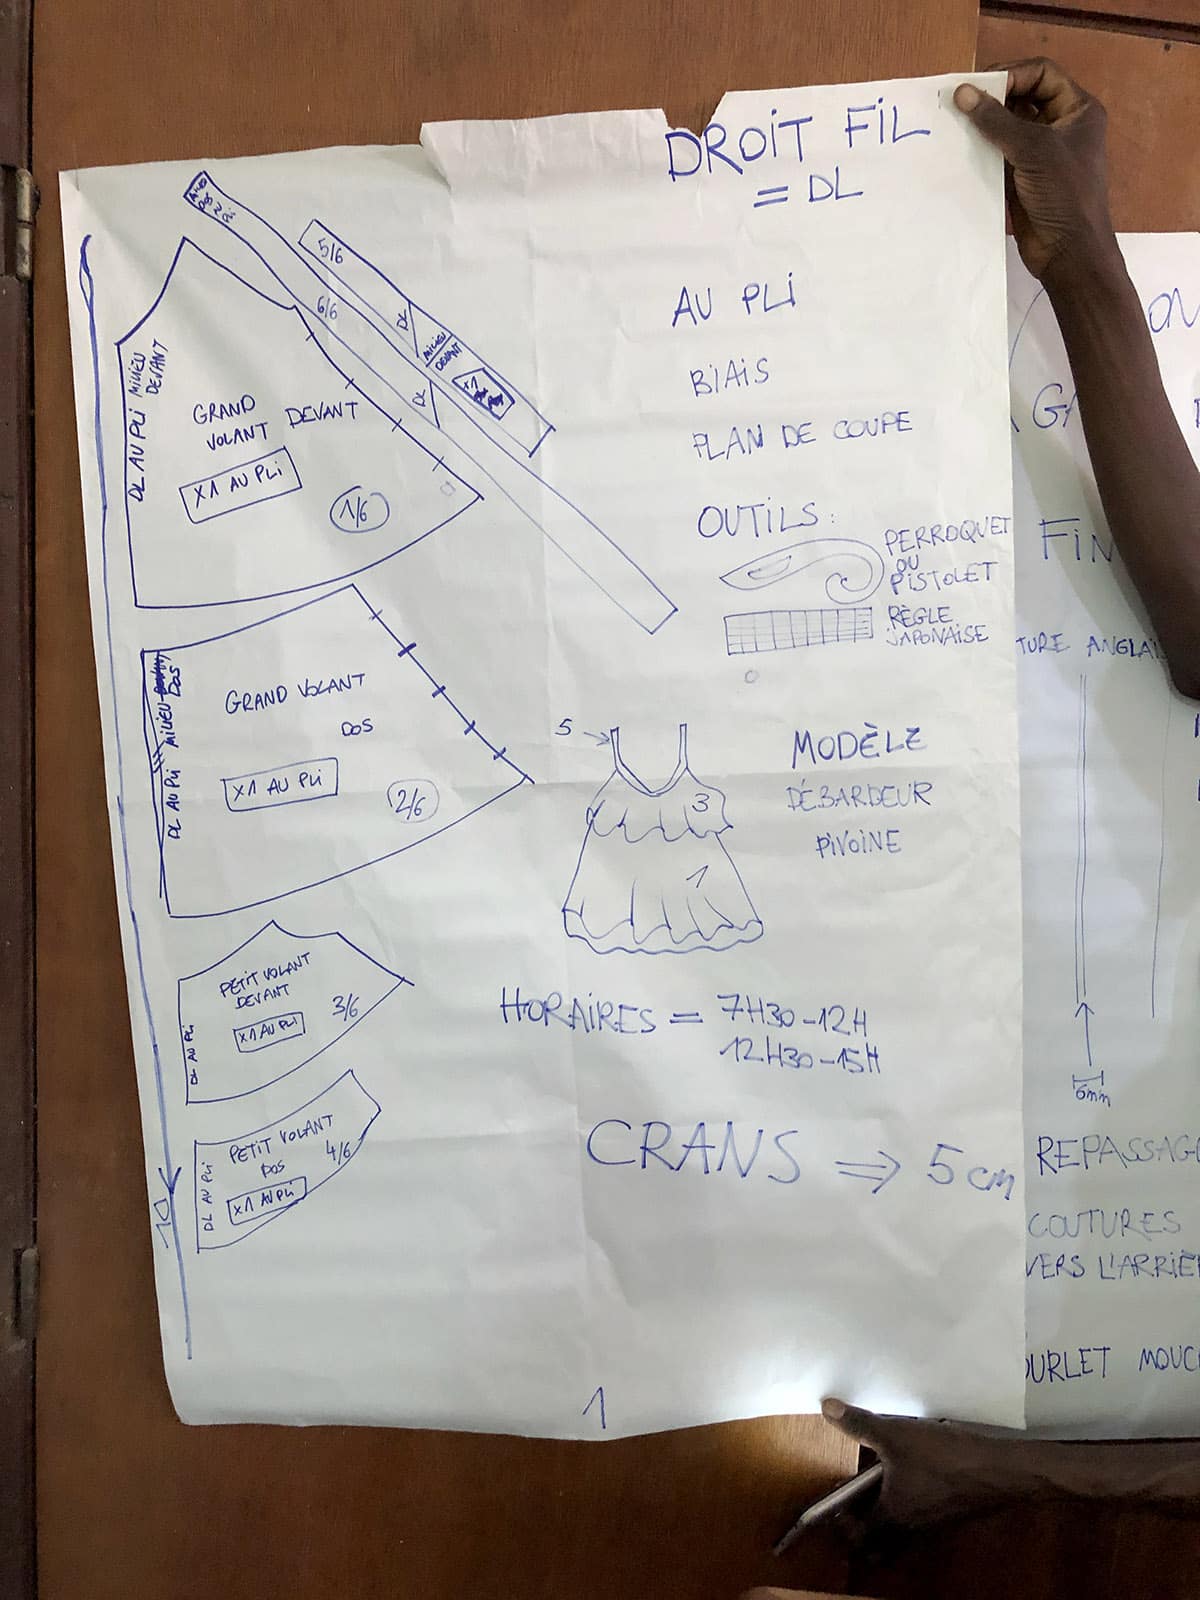 DROIT FIL
= DL
AU PLI
BIAIS
PLAN DE COUPE
OUTILS :
PERROQUET
OU
PISTOLET
RÈGLE
JAPONAISE
5/6
DL
MILIEU
DEVANT
6/6
DL
DL AU PLI MILIEU
DEVANT
GRAND DEVANT
VOLANT
X1 AU PLI
1/6
DL AU PLI MILIEU
DOS
GRAND VOLANT
DOS
X1 AU PLI
2/6
PETIT VOLANT
DEVANT
X1 AU PLI
3/6
DL AU PLI
PETIT VOLANT
DOS
4/6
X1 AU PLI
DL AU PLI
10
5
3
1
MODÈLE
DÉBARDEUR
PIVOINE
HORAIRES = 7H30-12H
12H30-15H
CRANS ⇒ 5 cm
1
ON
GA
FIN
TURE ANGLAI
6mm
REPASSAGE
COUTURES
VERS L'ARRIÈR
OURLET MOUC